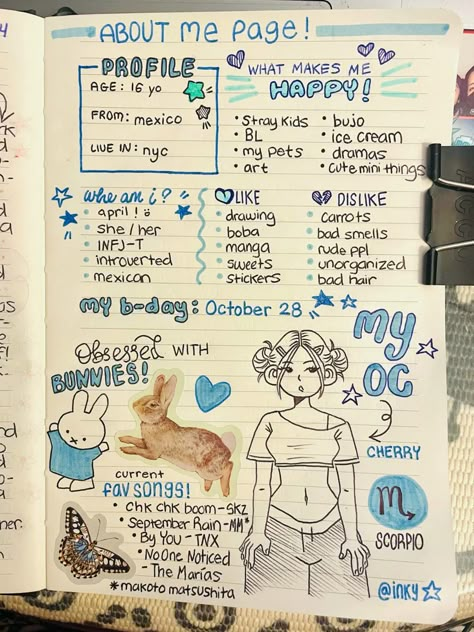 ABOUT ME PAGE!
PROFILE
AGE: 16 yo
FROM: mexico
LIVE IN: nyc
WHAT MAKES ME
HAPPY!
• Stray Kids
• BL
• my pets
• art
• bujo
• ice cream
• dramas
• cute mini things
who am i?
• april! ü
• she/her
• INFJ-T
• introverted
• mexican
LIKE
• drawing
• boba
• manga
• sweets
• stickers
DISLIKE
• carrots
• bad smells
• rude ppl
• unorganized
• bad hair
my b-day: October 28
Obsessed WITH
BUNNIES!
MY
OC
CHERRY
SCORPIO
current
fav songs!
• Chk chk boom - SKZ
• September Rain - MM*
• By You - TNX
• No One Noticed
- The Marías
* makoto matsushita
@inky